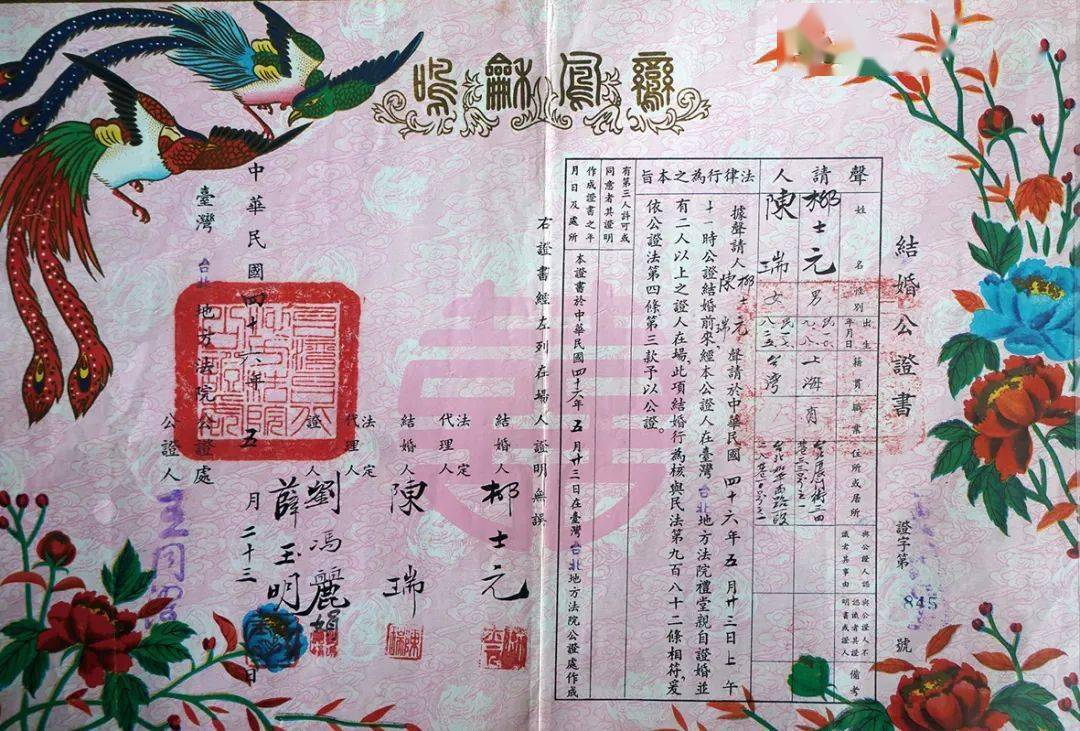 鸞鳳龢鳴
結婚公證書
證字第 845 號
聲請人
姓名 性別 出生年月日 籍貫 職業 住所或居所 與公證人認識者其事由 與公證人不認識者其證明書或證人 備考
柳士元 男 上海 商
陳瑞 女 台灣
法律行為之本旨
據聲請人柳士元陳瑞聲請於中華民國四十六年五月廿三日上午
十一時公證結婚前來,經本公證人在臺灣台北地方法院禮堂親自證婚並
有二人以上之證人在場,此項結婚行為核與民法第九百八十二條相符,爰
依公證法第四條第三款予以公證。
有第三人許可或同意者其證明
作成證書之年月日及處所
本證書於中華民國四十六年五月廿三日在臺灣台北地方法院公證處作成
右證書經左列在場人證明無誤
結婚人 柳士元
法定代理人
結婚人 陳瑞
法定代理人
證人 劉馮麗娟
薛玉明
中華民國四十六年五月二十三日
臺灣台北地方法院公證處
公證人